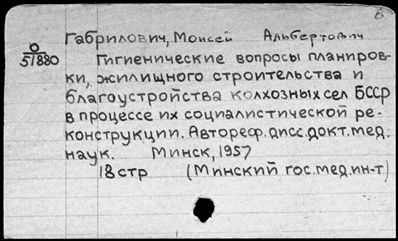 6
Габрилович, Моисей Альбертович
0
51880
Гигиенические вопросы планиров-
ки, жилищного строительства и
благоустройства колхозных сел БССР
в процессе их социалистической ре-
конструкции. Автореф. дисс. докт. мед.
наук. Минск, 1957
18 стр (Минский гос. мед. ин-т)